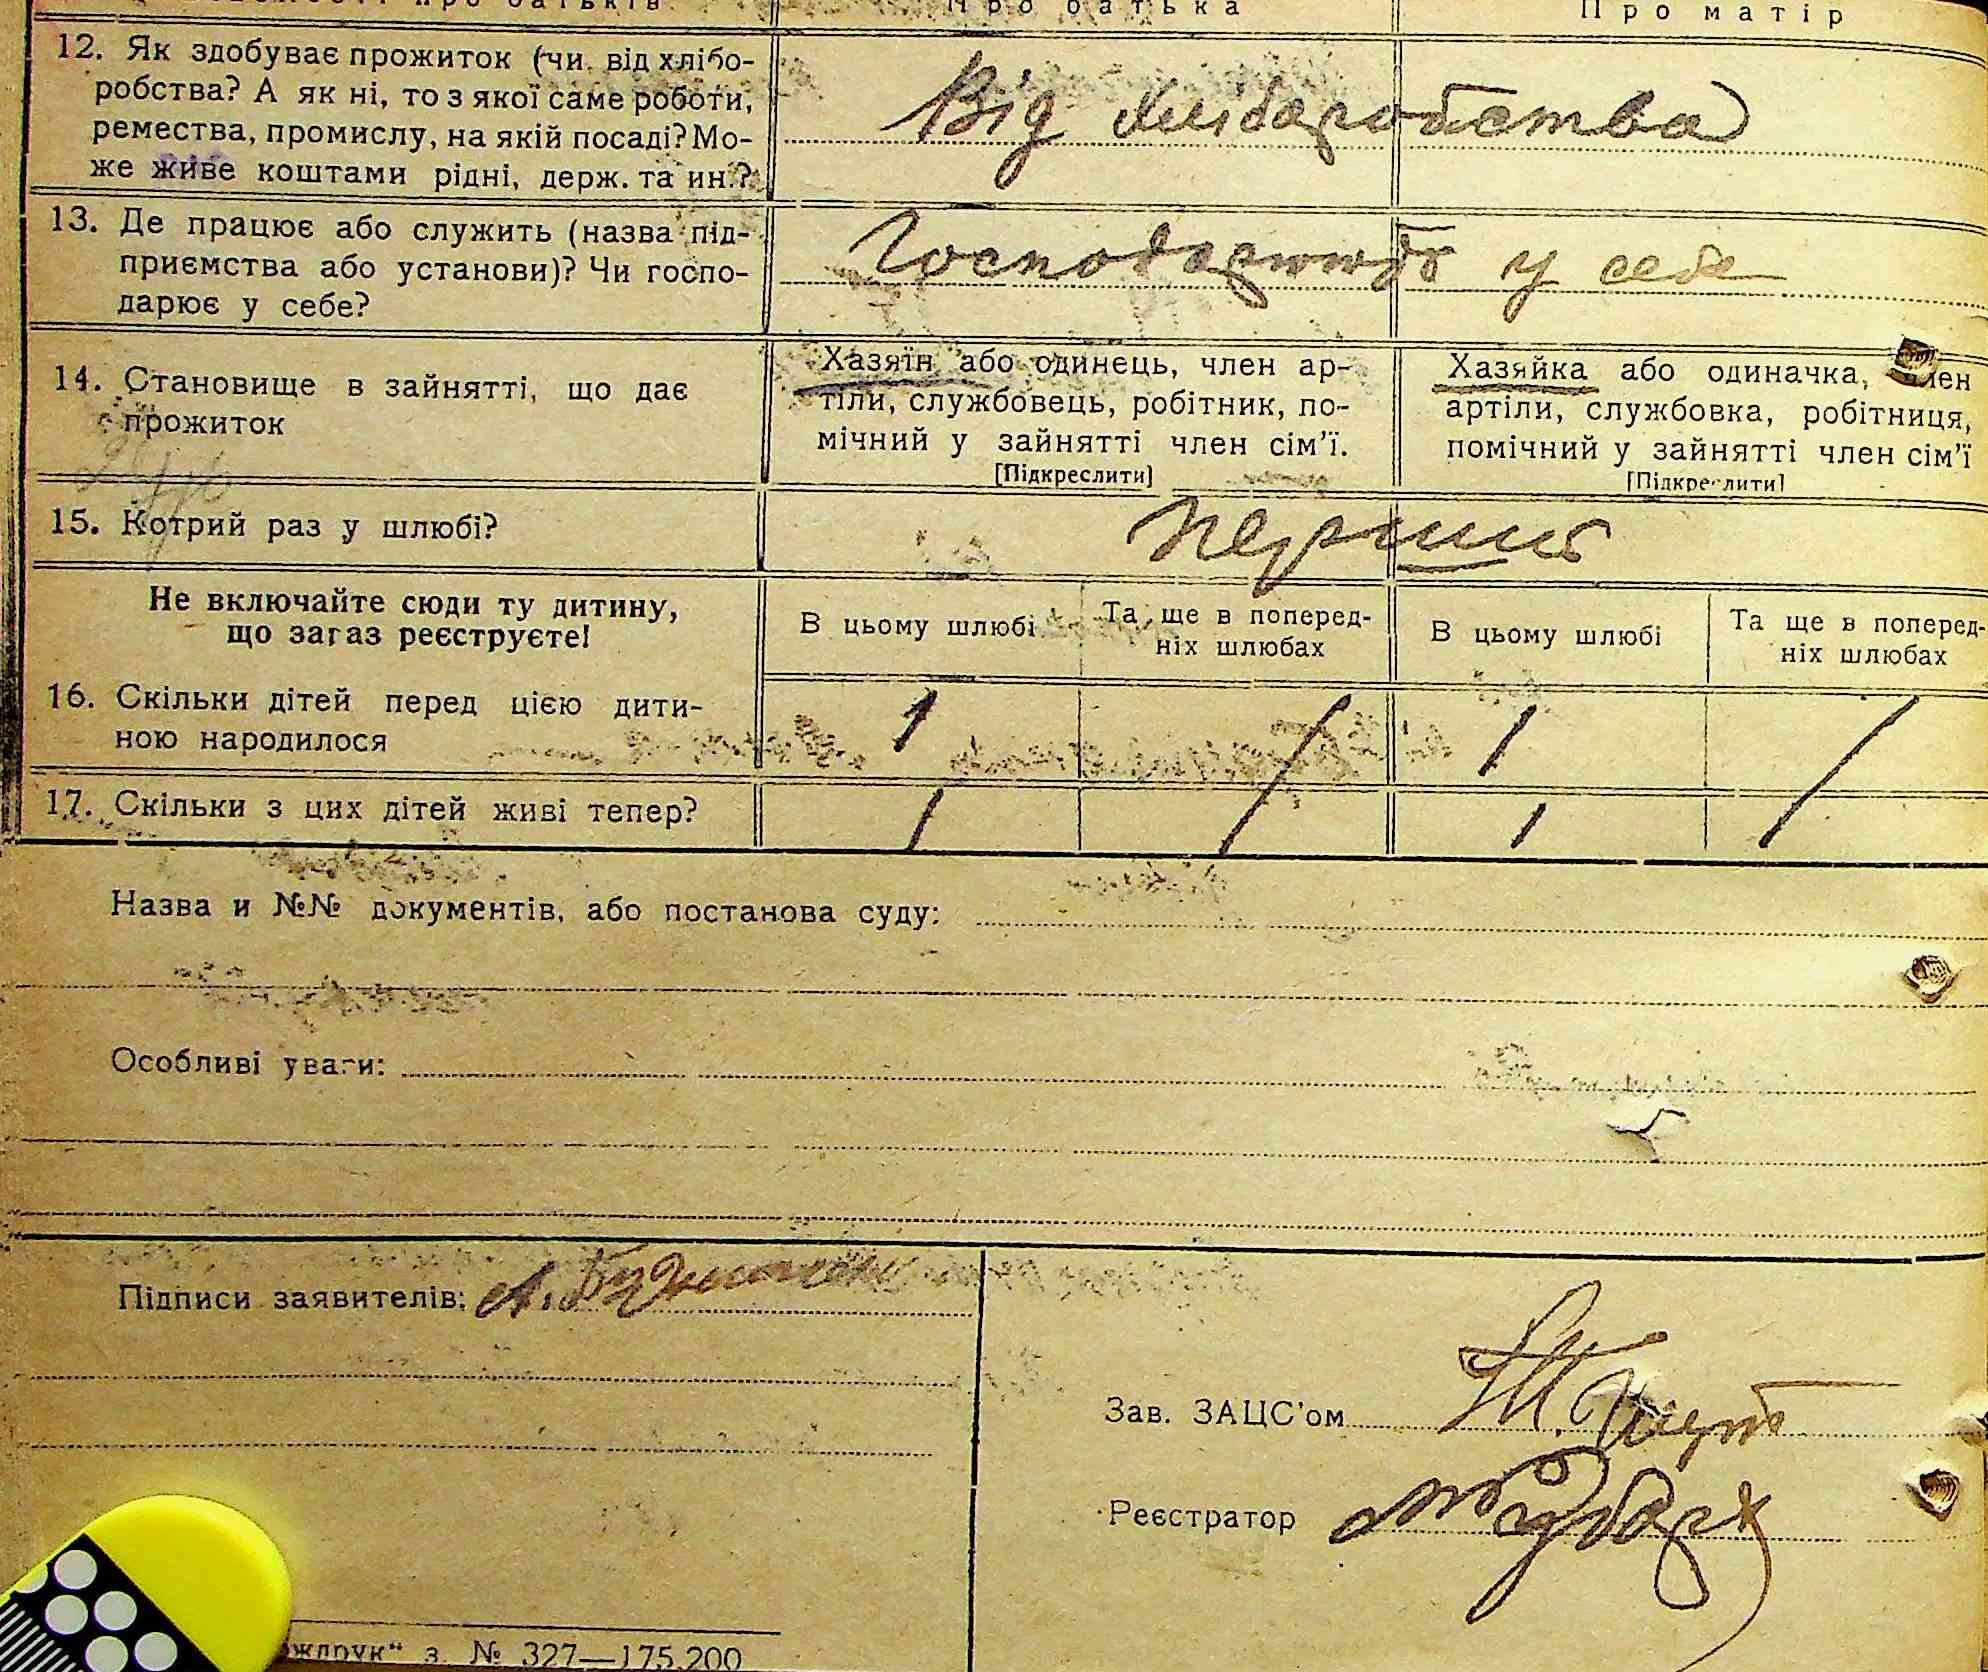 Про батька Про матір
12. Як здобуває прожиток (чи від хлібо-
робства? А як ні, то з якої саме роботи,
ремества, промислу, на якій посаді? Мо-
же живе коштами рідні, держ. та ин.?
Від хліборобства
13. Де працює або служить (назва під-
приємства або установи)? Чи госпо-
дарює у себе?
Господарюють у себе
14. Становище в зайнятті, що дає
прожиток
Хазяїн або одинець, член ар-
тіли, службовець, робітник, по-
мічний у зайнятті член сім'ї.
[Підкреслити]
Хазяйка або одиначка, член
артіли, службовка, робітниця,
помічний у зайнятті член сім'ї
[Підкреслити]
15. Котрий раз у шлюбі?
Не включайте сюди ту дитину,
що зараз реєструєте!
В цьому шлюбі
Та ще в поперед-
ніх шлюбах
В цьому шлюбі
Та ще в поперед-
ніх шлюбах
16. Скільки дітей перед цією дити-
ною народилося
1 / 1 /
17. Скільки з цих дітей живі тепер?
1 1
Назва и №№ документів, або постанова суду:
Особливі уваги:
Підписи заявителів: А.
Зав. ЗАЦС'ом
Реєстратор
з. № 327—175.200